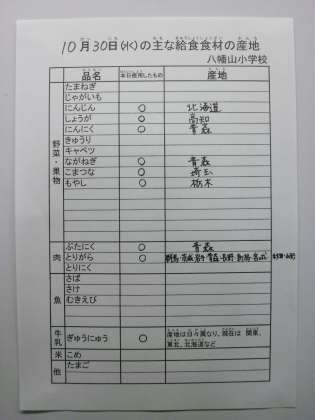 10月30日(水)の主な給食食材の産地
八幡山小学校
品名 本日使用したもの 産地
野菜・果物
たまねぎ
じゃがいも
にんじん ○ 北海道
しょうが ○ 高知
にんにく ○ 青森
きゅうり
キャベツ
ながねぎ ○ 青森
こまつな ○ 埼玉
もやし ○ 栃木
肉
ぶたにく ○ 青森
とりがら ○
とりにく
魚
さば
さけ
むきえび
牛乳
ぎゅうにゅう ○ 産地は日々異なり、現在は 関東、
東北、北海道など
米 こめ
他 たまご